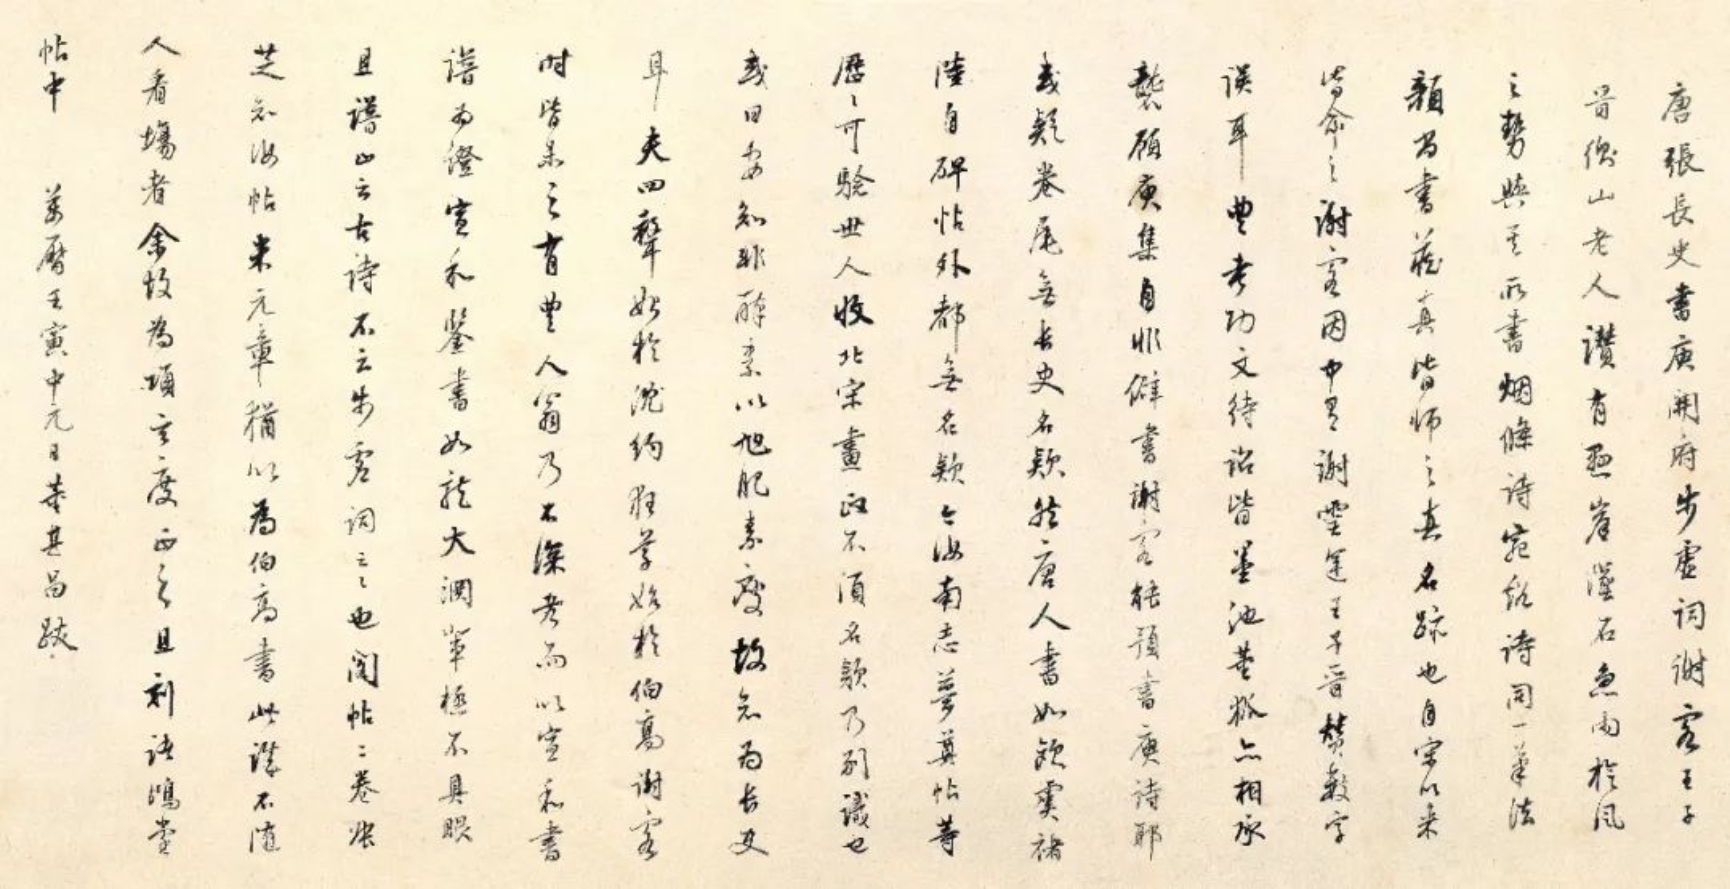 唐張長史書庾開府步虛詞謝客王子
晉衡山老人讚有懸崖墜石急雨旋風
之勢與其所書煙條詩宛谿詩同一筆法
顏尚書藏真皆師之真名跡也自宋以來
皆命之謝客因中有謝靈運王子晉贊數字
誤耳豐考功文待詔皆墨池董狐亦相承
襲顧庾集自非僻書謝客能預書庾詩耶
或疑卷尾無長史名款然唐人書如歐虞褚
陸自碑帖外都無名款今汝南志夢奠帖等
歷歷可驗世人收北宋畫政不須名款乃別識也
或曰安知非醉素以旭肥素瘦故知為長史
耳夫四聲始於沈約狂草始於伯高謝客
時皆未之有豐人翁乃不深考而以宣和書
譜為證宣和鑒書如龍大淵輩極不具眼
且譜止云古詩不云步虛詞云云也閣帖二卷張
芝知汝帖米元章猶以為伯高書此謬不隨
人看場者余故為項玄度正之且刻諸鴻堂
帖中 萬曆壬寅中元日董其昌跋